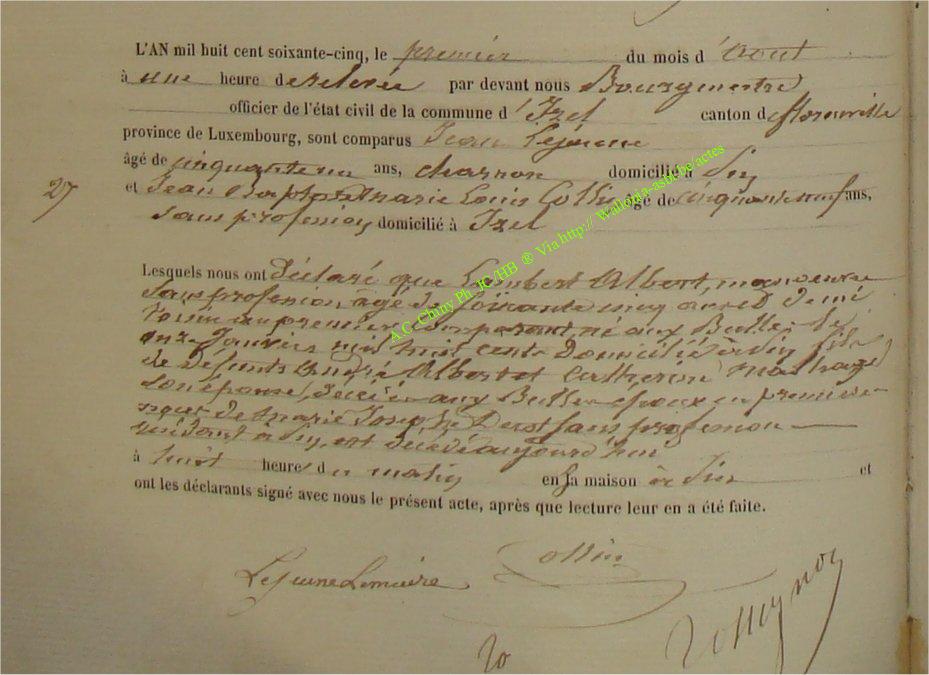 L'AN mil huit cent soixante-cinq, le premier du mois d'Aout
à une heure de relevée par devant nous Bourgmestre
officier de l'état civil de la commune d'Izel canton de florenville
province de Luxembourg, sont comparus Jean Lejeune
âgé de cinquante un ans, charron domicilié à
27
et Jean Baptiste Marie Louis Collin âgé de cinquante neuf ans,
sans profession, domicilié à Izel
Lesquels nous ont déclaré que Lambert Albert, manoeuvre
sans profession, âgé de soixante cinq
au premier comparant, né aux Bulles, le
onze Janvier mil huit cent domicilié à fils
de défunts André Albert et Catherine
son épouse, décédés aux Bulles époux en premières
noces de Marie Josephe sans profession
est décédé aujourd'hui
à huit heure du matin en sa maison à et
ont les déclarants signé avec nous le présent acte, après que lecture leur en a été faite.
Lejeune Lemaire Collin
A.C. Chiny Ph. JC /HB ® Via http:// Wallonia-asbl.be/actes